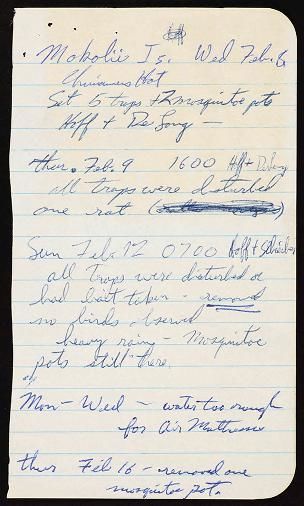 Mokolii Is. Wed Feb. 8
Chinamans Hat
Set 5 traps + 2 mosquitoe pots
Hoff + DeLong —
thur. Feb. 9 1600 Hoff + DeLong
all traps were disturbed
one rat
Sun Feb. 12 0700 Hoff +
all traps were disturbed or
had bait taken - removed
no birds observed
heavy rain - Mosquitoe
pots still there.
Mon - Wed - water too rough
for Air Mattress
thur Feb 16 - removed one
mosquitoe pot.